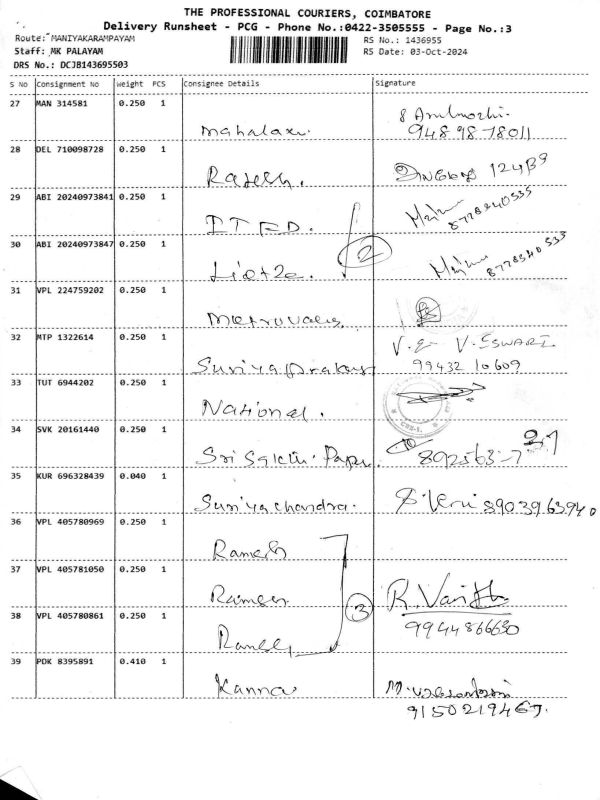 THE PROFESSIONAL COURIERS, COIMBATORE
Delivery Runsheet - PCG - Phone No.:0422-3505555 - Page No.:3
Route: MANIYAKARAMPAYAM RS No.: 1436955
Staff: MK PALAYAM RS Date: 03-Oct-2024
DRS No.: DCJB143695503
S No Consignment No Weight PCS Consignee Details Signature
27 MAN 314581 0.250 1
Mahalaxmi
948 98 78011
28 DEL 710098728 0.250 1
Rajesh.
29 ABI 20240973841 0.250 1
ITFD.
8778340535
30 ABI 20240973847 0.250 1
2
8778340535
31 VPL 224759202 0.250 1
32 MTP 1322614 0.250 1
V. ESWARI
Suriyaprakas
99432 10609
33 TUT 6944202 0.250 1
National.
34 SVK 20161440 0.250 1
Sri Sakthi Paper.
35 KUR 696328439 0.040 1
Suriyachandra.
8903963940
36 VPL 405780969 0.250 1
Ramesh
37 VPL 405781050 0.250 1
Ramesh
3
38 VPL 405780861 0.250 1
Ramesh
9944866630
39 PDK 8395891 0.410 1
Kannan
9150219467.